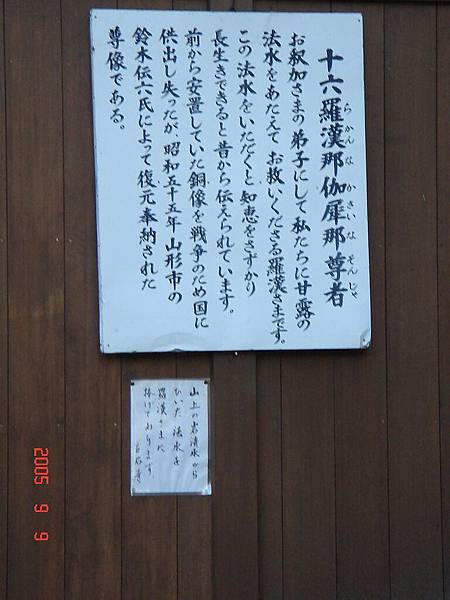 十六羅漢那伽犀那尊者
らかんなかさいなそんじゃ
お釈加さまの弟子にして私たちに甘露の
法水をあたえてお救いくださる羅漢さまです。
この法水をいただくと知恵をさずかり
長生きできると昔から伝えられています。
前から安置していた銅像を戦争のため国に
供出し失ったが、昭和五十五年山形市の
鈴木伝六氏によって復元奉納された
尊像である。
山上の岩清水から
ひいた法水を
羅漢さまに
捧げております
2005 9 9